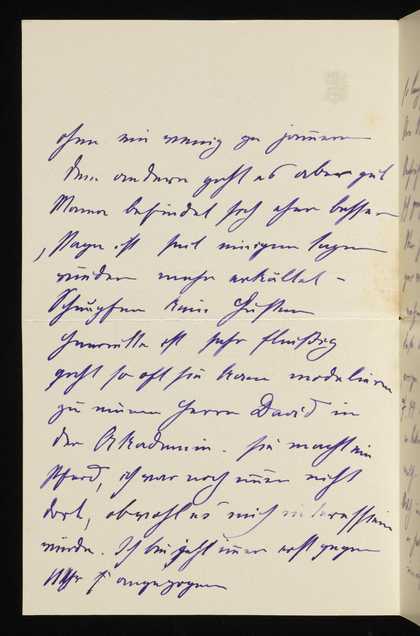 ohne ein wenig zu jammern
Den andern geht es aber gut
Mama befindet sich eher besser
Papa ist seit einigen Tagen
wieder mehr erkältet -
Schnupfen kein Husten
Henriette ist sehr fleißig
geht so oft sie kann modelieren
zu einem Herrn David in
der Akademie. Sie macht ein
Pferd, ich war noch immer nicht
dort, obwohl es mich interessiren
würde. Ich bin jetzt immer erst gegen
Uhr angezogen